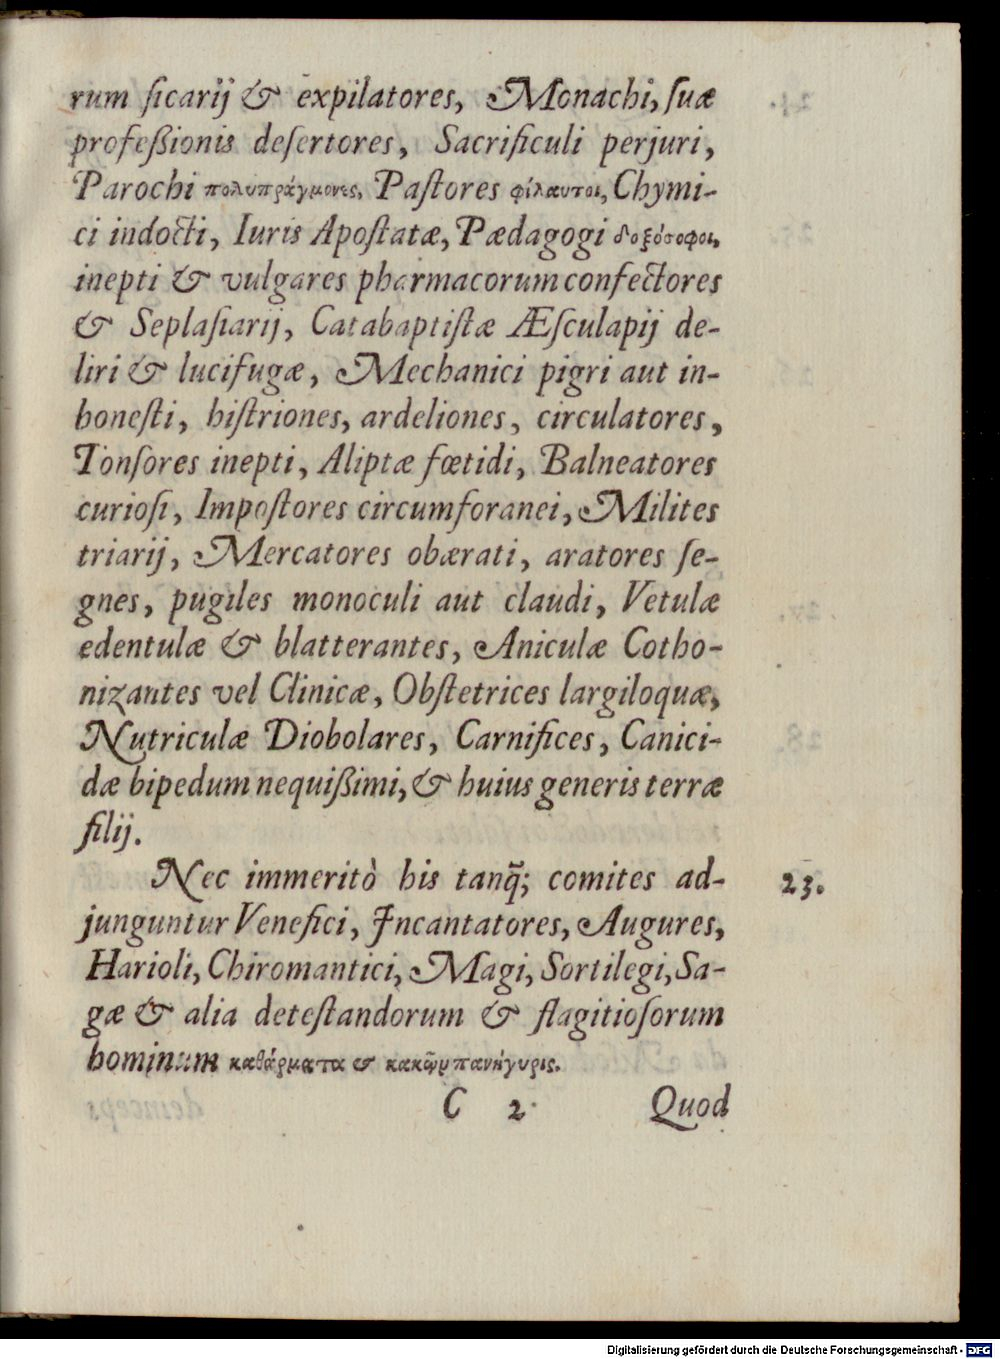 rum ſicarij & expilatores, Monachi, ſuæ
profeßionis deſertores, Sacrificuli perjuri,
Parochi πολυπράγμονες, Paſtores φίλαυτοι, Chymi-
ci indocti, Iuris Apoſtatæ, Pædagogi δοξόσοφοι,
inepti & vulgares pharmacorum confectores
& Seplaſiarij, Catabaptiſtæ Æſculapij de-
liri & lucifugæ, Mechanici pigri aut in-
honeſti, hiſtriones, ardeliones, circulatores,
Tonſores inepti, Aliptæ fœtidi, Balneatores
curioſi, Impoſtores circumforanei, Milites
triarij, Mercatores obærati, aratores ſe-
gnes, pugiles monoculi aut claudi, Vetulæ
edentulæ & blatterantes, Aniculæ Cotho-
nizantes vel Clinicæ, Obſtetrices largiloquæ,
Nutriculæ Diobolares, Carnifices, Canici-
dæ bipedum nequißimi, & huius generis terræ
filij.
Nec immeritò his tanq̃; comites ad- 23.
junguntur Venefici, Incantatores, Augures,
Harioli, Chiromantici, Magi, Sortilegi, Sa-
gæ & alia deteſtandorum & flagitioſorum
hominum καθάρματα & κακῶν πανήγυρις.
C 2 Quod
Digitalisierung gefördert durch die Deutsche Forschungsgemeinschaft - DFG